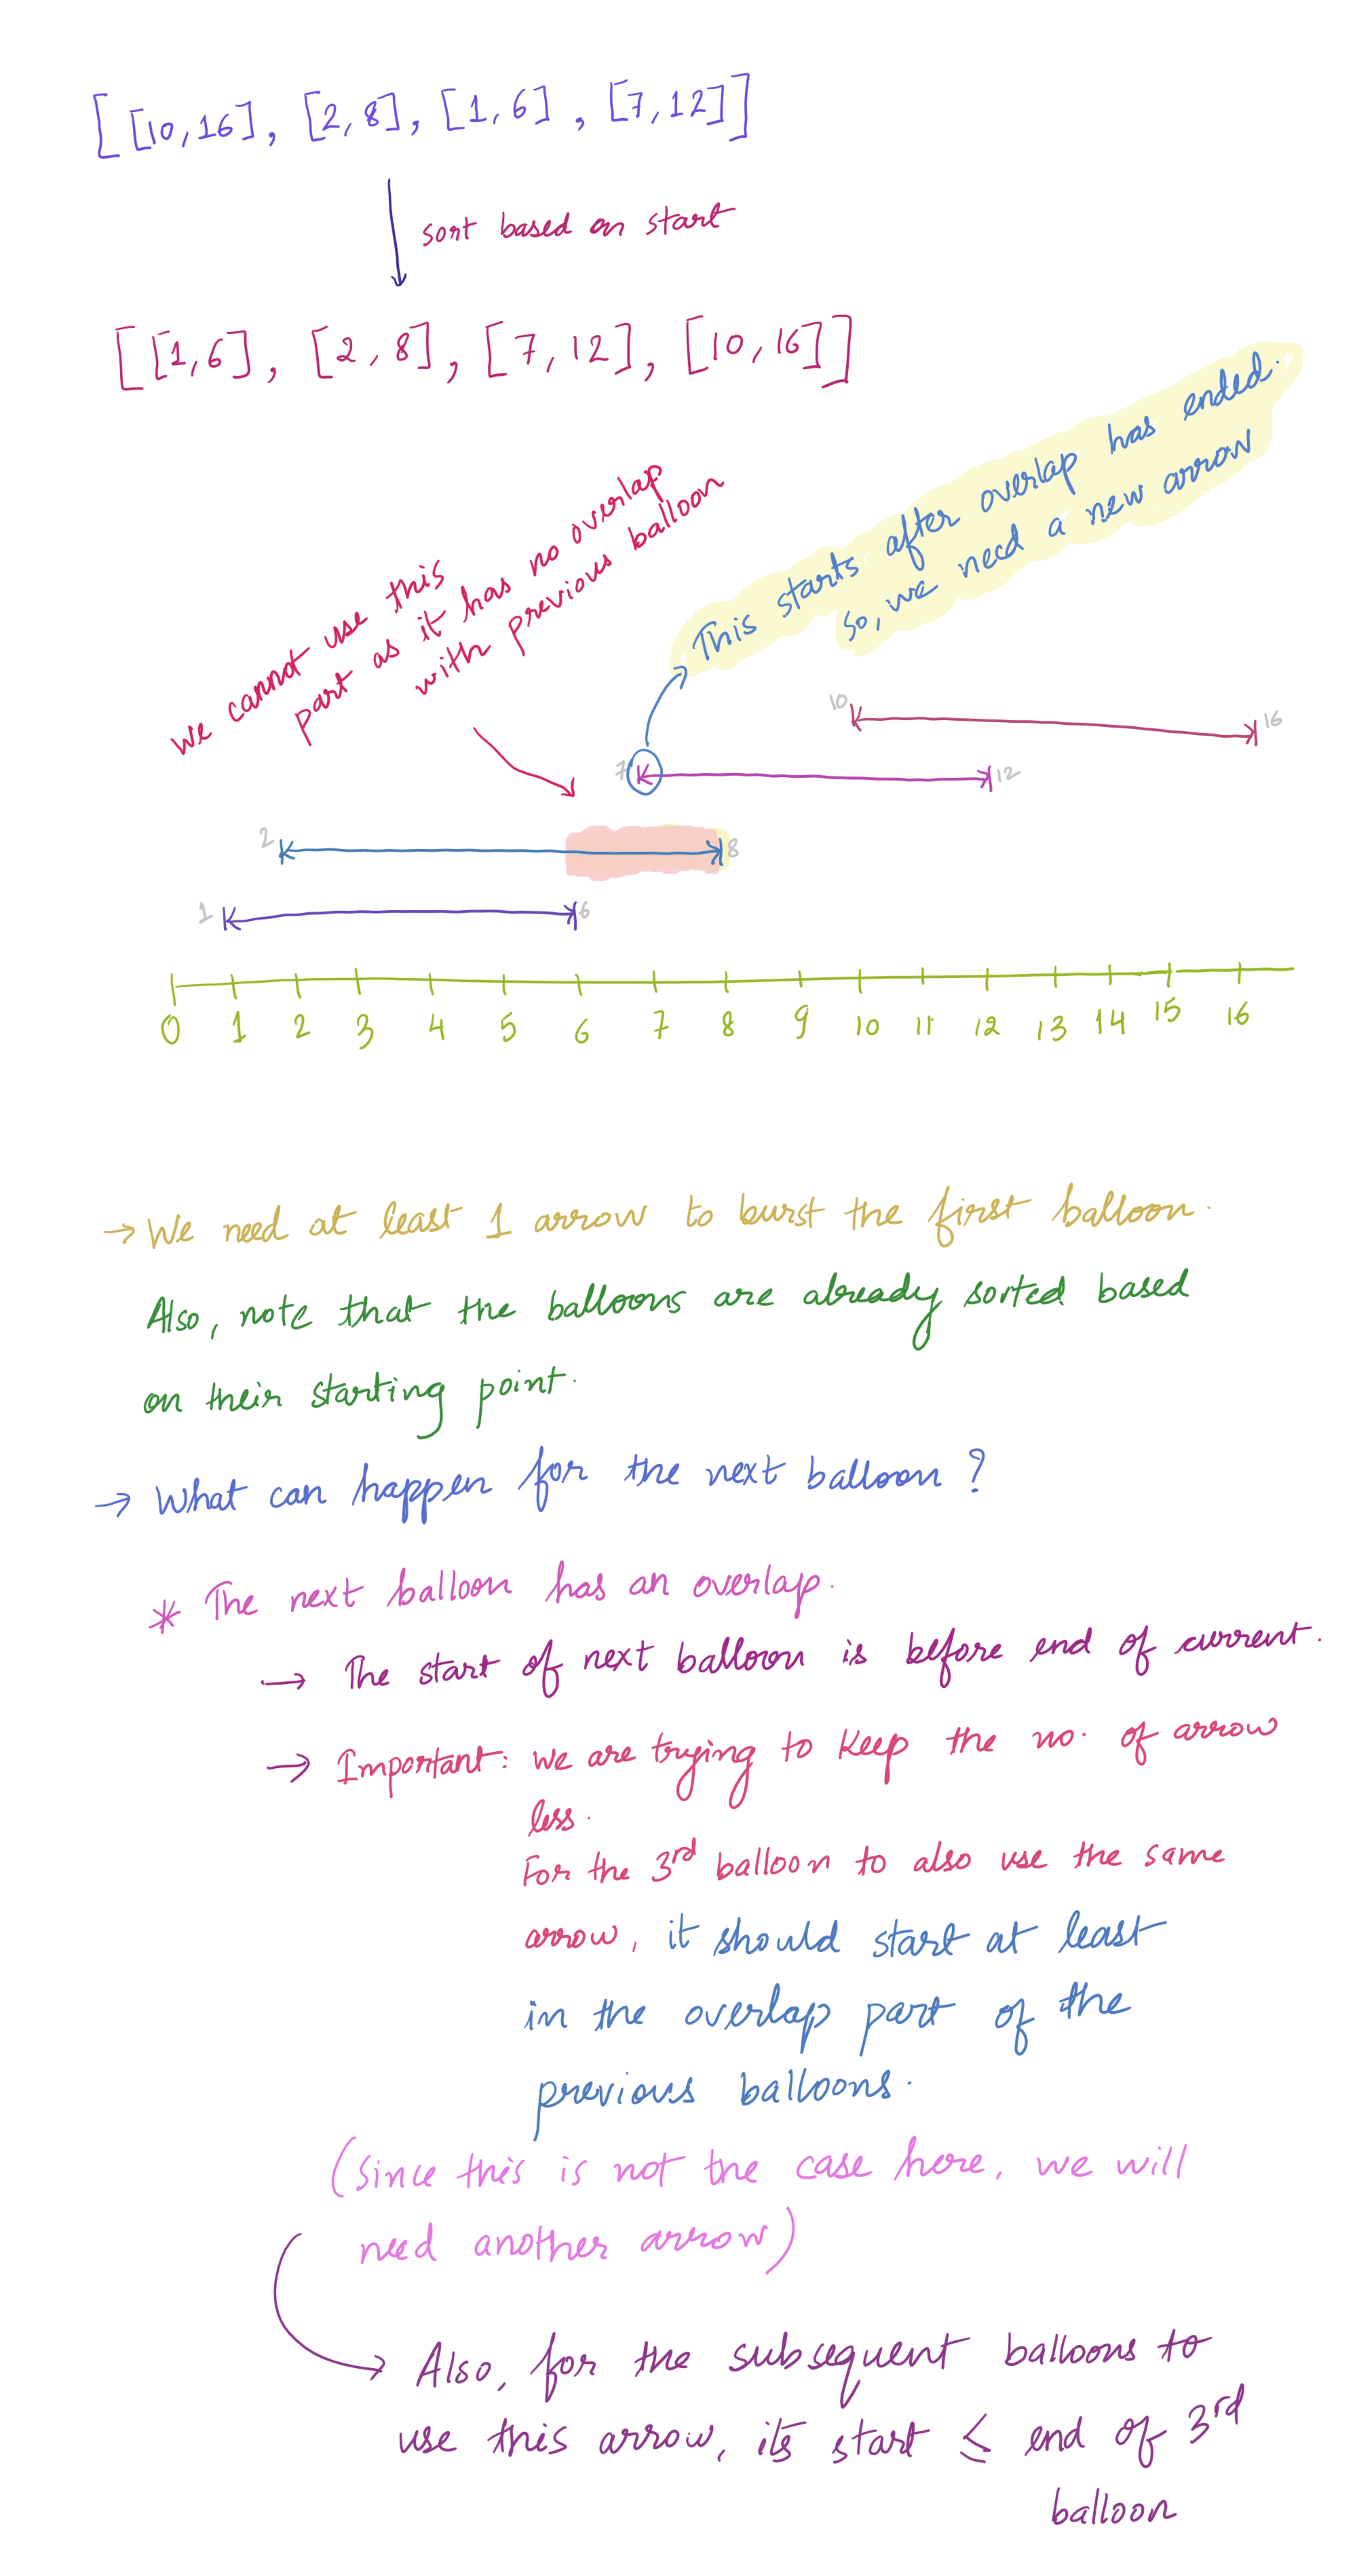 [[10,16], [2,8], [1,6], [7,12]]
sort based on start
[[1,6], [2,8], [7,12], [10,16]]
we cannot use this
part as it has no overlap
with previous balloon
This starts after overlap has ended.
so, we need a new arrow
10 16
7 12
2 8
1 6
0 1 2 3 4 5 6 7 8 9 10 11 12 13 14 15 16
→ We need at least 1 arrow to burst the first balloon.
Also, note that the balloons are already sorted based
on their starting point.
→ What can happen for the next balloon?
* The next balloon has an overlap.
→ The start of next balloon is before end of current.
→ Important: we are trying to keep the no. of arrow
less.
For the 3rd balloon to also use the same
arrow, it should start at least
in the overlap part of the
previous balloons.
(Since this is not the case here, we will
need another arrow)
→ Also, for the subsequent balloons to
use this arrow, its start ≤ end of 3rd
balloon